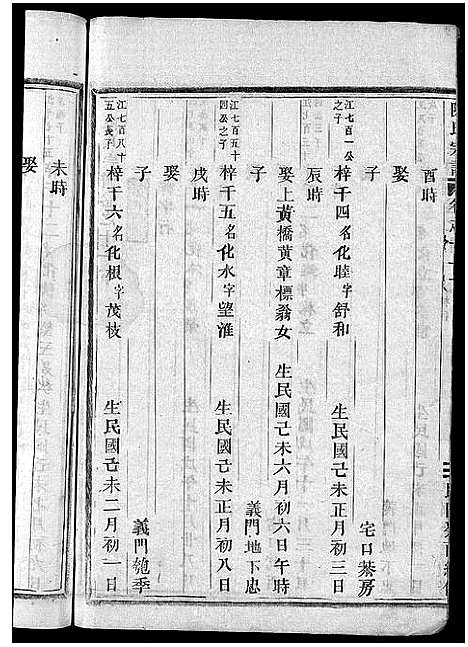 酉時
娶
子　宅口棊房
江七百一公之子 梓千四 名化睦 字舒和　生民國己未正月初三日
辰時
娶上黃橋黃章標翁女　生民國己未六月初六日午時
子　義門地下忠
江七百五十四公之子 梓千五 名化水 字望淮　生民國己未正月初八日
戌時
娶
子　義門
江七百八十五公長子 梓千六 名化根 字茂枝　生民國己未二月初一日
未時
娶